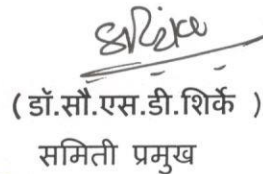 (डॉ.सौ.एस.डी.शिर्के )
समिती प्रमुख